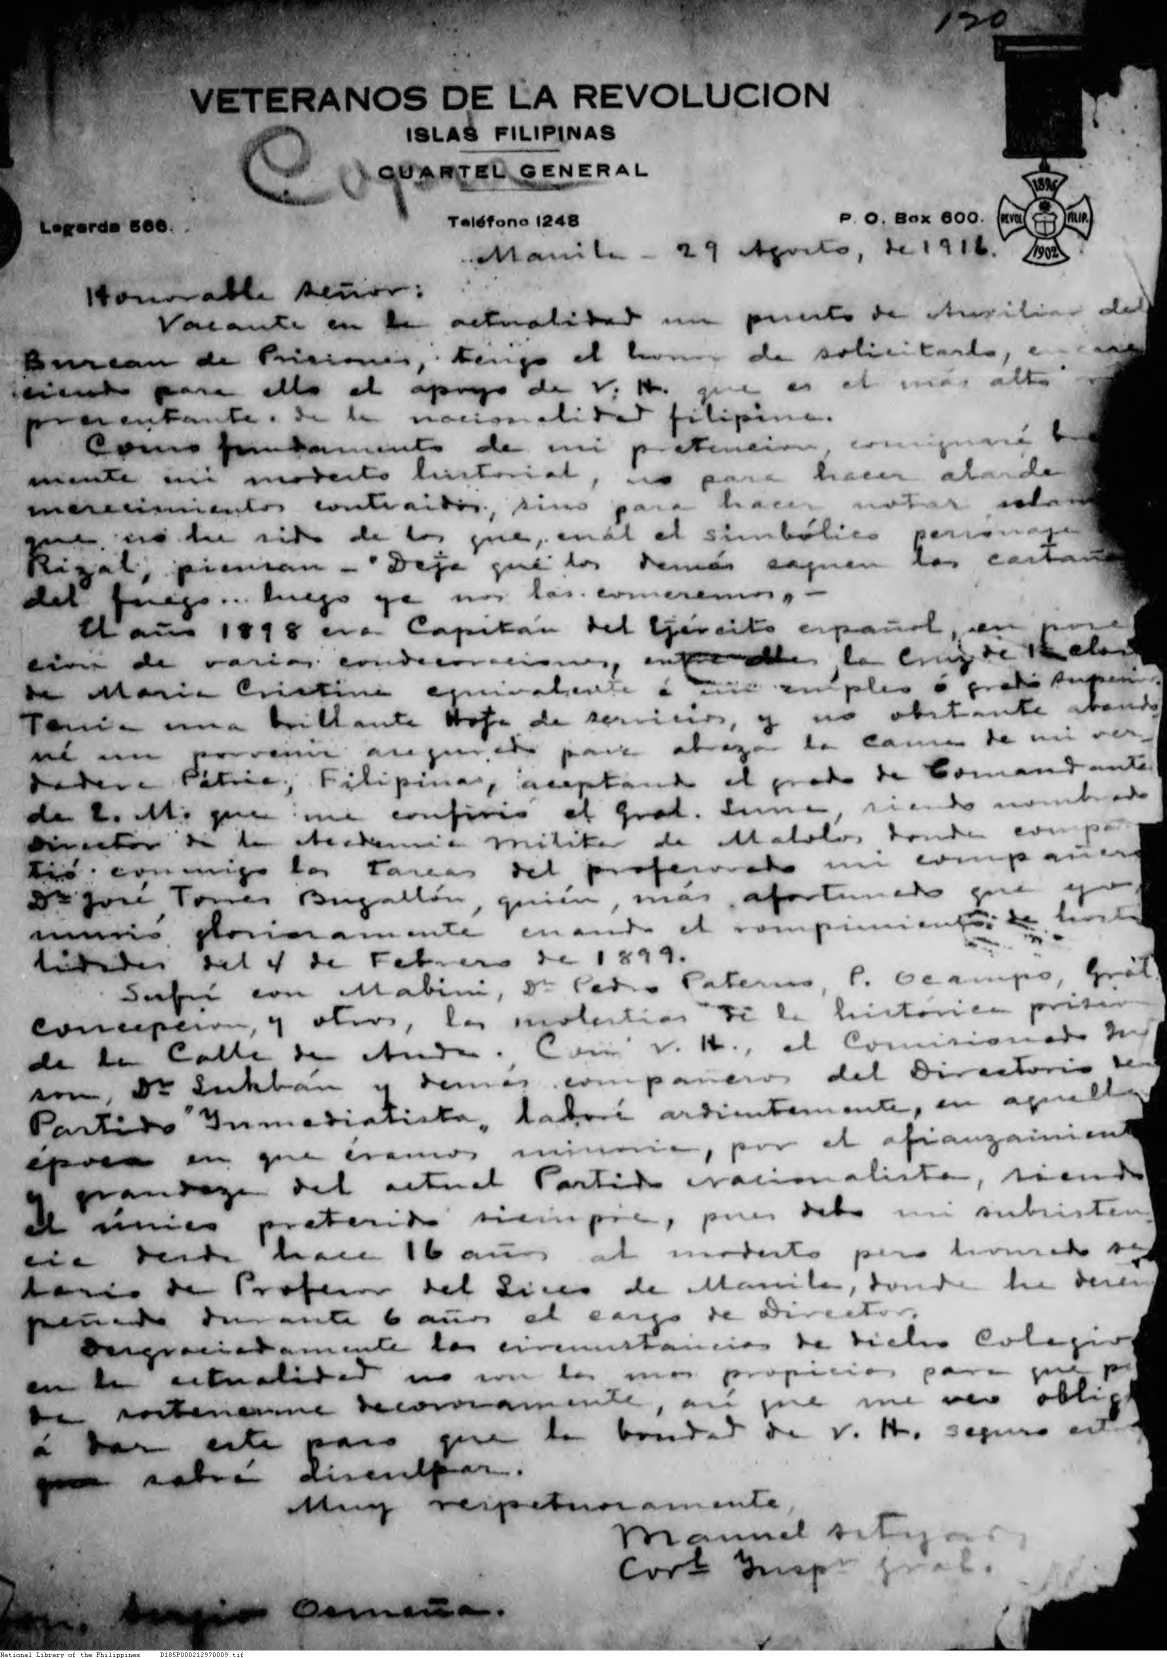 120
VETERANOS DE LA REVOLUCION
ISLAS FILIPINAS
Copia
CUARTEL GENERAL
Legarda 566.
Teléfono 1248
P. O. Box 600.
1896
REVOL. FILIP.
1902
Manila - 29 Agosto, de 1916.
Honorable señor:
Vacante en la actualidad un puesto de Auxiliar del
Bureau de Prisiones, tengo el honor de solicitarlo,
ciendo para ello el apoyo de V. H. que es el más alto
presentante de la nacionalidad filipina.
Como fundamento de mi pretencion, consignaré bre
mente mi modesto historial, no para hacer alarde
merecimientos contraidos, sino para hacer notar solam
que no he sido de los que, cuál el simbólico personaje
Rizal, piensan - "Deja que los demás saquen las castañ
del fuego.. luego ya nos las comeremos„ -
El año 1898 era Capitán del Ejército español, en pose
cion de varias condecoraciones, entre ellas la Cruz de 1ª clas
de Maria Cristina equivalente á un empleo ó grado superior.
Tenia una brillante Hoja de servicios, y no obstante abando
né un porvenir asegurado para abrazar la causa de mi ver-
dadera Pátria, Filipinas, aceptando el grado de Comandante
de E. M. que me confirió el Gral. Luna, siendo nombrado
Director de la Academia Militar de Malolos donde compar
tió conmigo las tareas del profesorado mi compañero
Dn José Torres Bugallón, quién, más afortunado que yo,
murió gloriosamente cuando el rompimiento de hosti
lidades del 4 de Febrero de 1899.
Sufrí con Mabini, Dn Pedro Paterno, P. Ocampo, Gral
Concepcion, y otros, las molestias de la histórica prisión
de la Calle de Anda. Con V. H., el Comisionado
son, Dr Lukbán y demás compañeros del Directorio del
Partido "Inmediatista„ laboré ardientemente, en aquella
época en que éramos minoria, por el afianzamiento
y grandeza del actual Partido nacionalista, siendo
el único preterido siempre, pues debo mi subsisten
cia desde hace 16 años al modesto pero honrado sa
lario de Profesor del Liceo de Manila, donde he desem
peñado durante 6 años el cargo de Director.
Desgraciadamente las circunstancias de dicho Colegio
en la actualidad no son las mas propicias para que pu
da sostenerme decorosamente, asi que me veo oblig
á dar este paso que la bondad de V. H. seguro est
que sabrá disculpar.
Muy respetuosamente,
Manuel
Corl. Inspr Gral.
Hon. Sergio Osmeña.
National Library of the Philippines D185P000212970009.tif